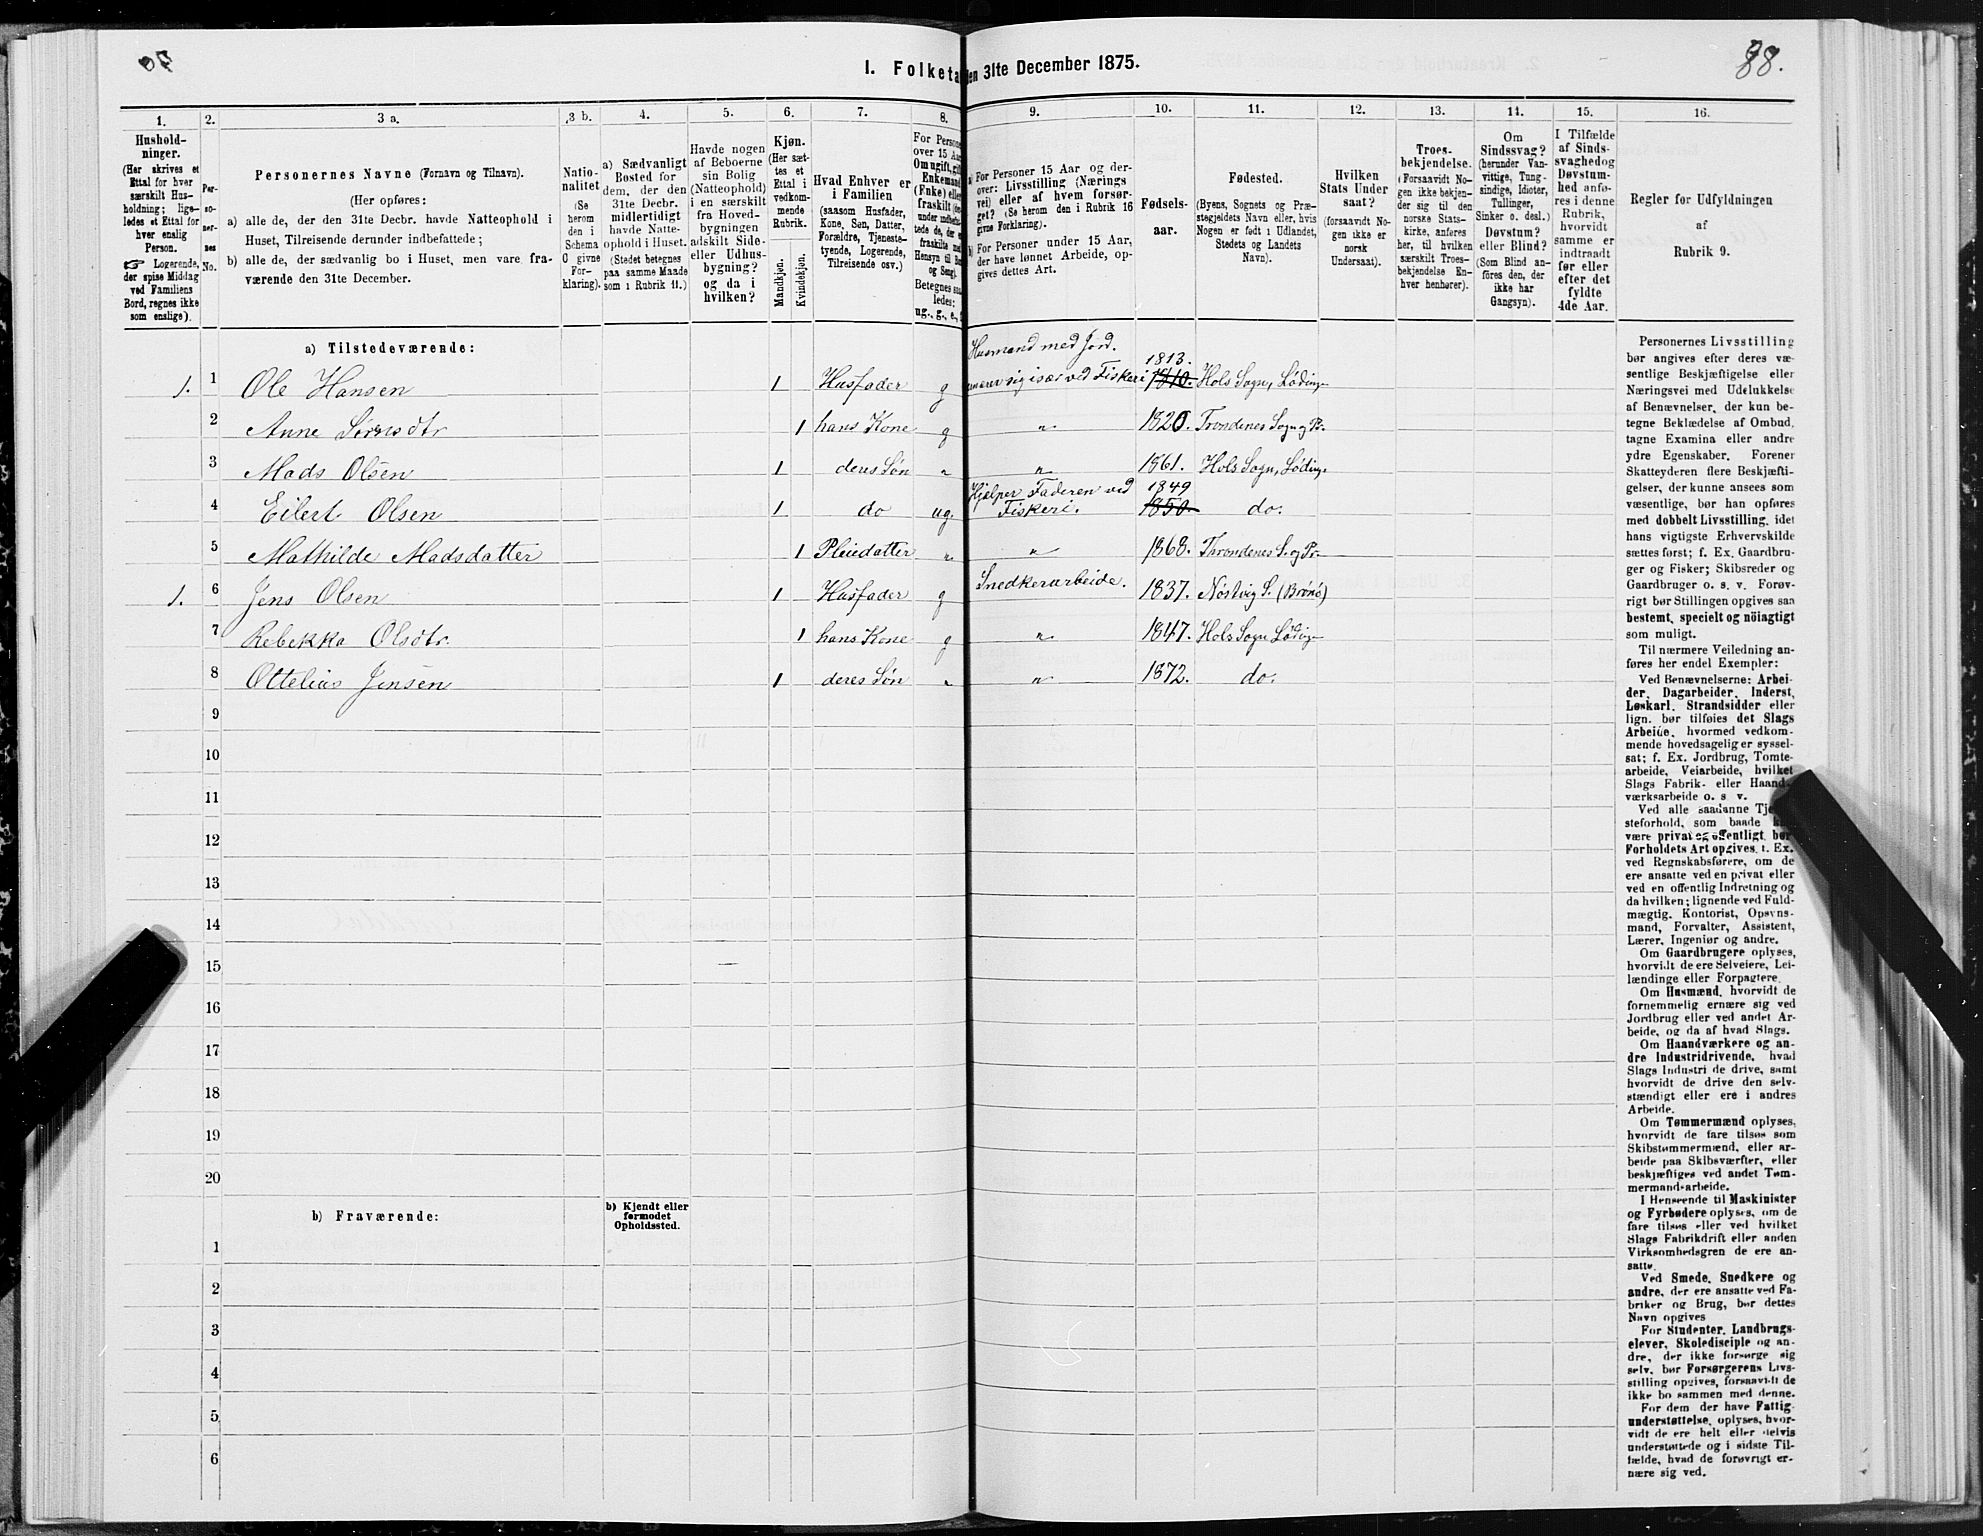 88.
I. Folketa en 31te December 1875.
1.
Hushold-
ninger.
(Her skrives et
Ettal for hver
særskilt Hus-
holdning; lige-
ledes et Ettal for
hver enslig
Person.
☞ Logerende,
der spise Middag
ved Familiens
Bord, regnes ikke
som enslige).
2.
Per-
so-
ner-
nes
No.
3 a.
Personernes Navne (Fornavn og Tilnavn).
(Her opføres:
a) alle de, der den 31te Decbr. havde Natteophold i
Huset, Tilreisende derunder indbefattede;
b) alle de, der sædvanlig bo i Huset, men vare fra-
værende den 31te December.
3 b.
Natio-
nalitet
(Se
herom
den i
Schema
O givne
For-
klaring).
4.
a) Sædvanligt
Bosted for
dem, der den
31te Decbr.
midlertidigt
havde Natte-
ophold i Huset.
(Stedet betegnes
paa samme Maade
som i Rubrik 11.)
5.
Havde nogen
af Beboerne
sin Bolig
(Natteophold)
i en særskilt
fra Hoved-
bygningen
adskilt Side-
eller Udhus-
bygning?
og da i
hvilken?
6.
Kjøn.
(Her sæt-
tes et
Ettal i
vedkom-
mende
Rubrik.
Mandkjøn.
Kvindekjøn.
7.
Hvad Enhver er
i Familien
(saasom Husfader,
Kone, Søn, Datter,
Forældre, Tjeneste-
tyende, Logerende,
Tilreisende osv.)
8.
For Persone
over 15 Aa
Om ugift, gift
Enkemand
(Enke) elle
fraskilt
Betegnes saa-
ledes:
ug., g., e.,
9.
a) For Personer 15 Aar og der-
over: Livsstilling (Nærings
vei) eller af hvem forsør-
get? (Se herom den i Rubrik 16
givne Forklaring).
b) For Personer under 15 Aar,
der have lønnet Arbeide, op-
gives dettes Art.
10.
Fødsels-
aar.
11.
Fødested.
(Byens, Sognets og Præ-
stegjeldets Navn eller, hvis
Nogen er født i Udlandet,
Stedets og Landets
Navn).
12.
Hvilken
Stats Under
saat?
(forsaavidt No-
gen ikke er
norsk
Undersaat).
13.
Troes-
bekjendelse.
(Forsaavidt No-
gen ikke bekjen-
der sig til den
norske Stats-
kirke, anføres
her, til hvilken
særskilt Troes-
bekjendelse En-
hver henhører).
14.
Om
Sindssvag?
(herunder Van-
vittige, Tung-
sindige, Idioter,
Tullinger,
Sinker o. desl.)
Døvstum?
eller Blind?
(Som Blind an-
føres den, der
ikke har
Gangsyn).
15.
I Tilfælde
af Sinds-
svaghed og
Døvstum-
hed anfø-
res i denne
Rubrik,
hvorvidt
samme er
indtraadt
før eller
efter det
fyldte
4de Aar.
16.
Regler for Udfyldningen
af
Rubrik 9.
a) Tilstedeværende:
Husmand med Jord.
1813.
1. 1 Ole Hansen 1 Husfader g sig især ved Fiskeri 1810. Hols Sogn, Løding
2 Anne Sørensdtr 1 hans Kone g " 1820. Trondenes Sogn og Pr.
3 Mads Olsen 1 deres Søn " " 1861. Hols Sogn, Løding.
Hjælper Faderen ved 1849
4 Eilert Olsen 1 do ug. Fiskeri. 1850. do.
5 Mathilde Madsdatter 1 Pleiedatter " " 1868. Throndenes S. og Pr.
1. 6 Jens Olsen 1 Husfader g Snedkerarbeide. 1837. Nøstvig S. (Brønø)
7 Rebekka Olsdtr. 1 hans Kone g " 1847. Hols Sogn Løding
8 Ottelius Jensen 1 deres Søn " " 1872. do.
9
10
11
12
13
14
15
16
17
18
19
20
b) Fraværende:
b) Kjendt eller
formodet
Opholdssted.
1
2
3
4
5
6
Personernes Livsstilling
bør angives efter deres væ-
sentlige Beskjæftigelse eller
Næringsvei med Udelukkelse
af Benævnelser, der kun be-
tegne Beklædelse af Ombud,
tagne Examina eller andre
ydre Egenskaber. Forener
Skatteyderen flere Beskjæfti-
gelser, der kunne ansees som
væsentlige, bør han opføres
med dobbelt Livsstilling, idet
hans vigtigste Erhvervskilde
sættes først; f. Ex. Gaardbru-
ger og Fisker; Skibsreder og
Gaardbruger o. s. v. Forøv-
rigt bør Stillingen opgives saa
bestemt, specielt og nöiagtigt
som muligt.
Til nærmere Veiledning an-
føres her endel Exempler:
Ved Benævnelserne: Arbei-
der, Dagarbeider, Inderst,
Løskarl, Strandsidder eller
lign. bør tilføies det Slags
Arbeide, hvormed vedkom-
mende hovedsagelig er syssel-
sat; f. Ex. Jordbrug, Tomte-
arbeide, Veiarbeide, hvilket
Slags Fabrik- eller Haand-
værksarbeide o. s. v.
Ved alle saadanne Tje
steforhold, som baade k
være privat og offentligt, bør
Forholdets Art opgives, f. Ex.
ved Regnskabsførere, om de
ere ansatte ved en privat eller
ved en offentlig Indretning og
da hvilken; lignende ved Fuld-
mægtig, Kontorist, Opsyns-
mand, Forvalter, Assistent,
Lærer, Ingeniør og andre.
Om Gaardbrugere oplyses,
hvorvidt de ere Selveiere, Lei-
lændinge eller Forpagtere.
Om Husmænd, hvorvidt de
fornemmelig ernære sig ved
Jordbrug eller ved andet Ar-
beide, og da af hvad Slags.
Om Haandværkere og an-
dre Industridrivende, hvad
Slags Industri de drive, samt
hvorvidt de drive den selv-
stændigt eller ere i andres
Arbeide.
Om Tømmermænd oplyses,
hvorvidt de fare tilsøs som
Skibstømmermænd, eller ar-
beide paa Skibsværfter, eller
beskjæftiges ved andet Tøm-
mermandsarbeide.
I Henseende til Maskinister
og Fyrbødere oplyses, om de
fare tilsøs eller ved hvilket
Slags Fabrikdrift eller anden
Virksomhedsgren de ere an-
satte.
Ved Smede, Snedkere og
andre, der ere ansatte ved Fa-
briker og Brug, bør dettes
Navn opgives
For Studenter, Landbrugs-
elever, Skoledisciple og an-
dre, der ikke forsørge sig
selv, bør Forsørgerens Livs-
stilling opgives, forsaavidt de
ikke bo sammen med denne.
For dem der have Fattig-
understøttelse, oplyses, hvor-
vidt de ere helt eller delvis
understøttede og i sidste Til-
fælde, hvad de forøvrigt er-
nære sig ved.